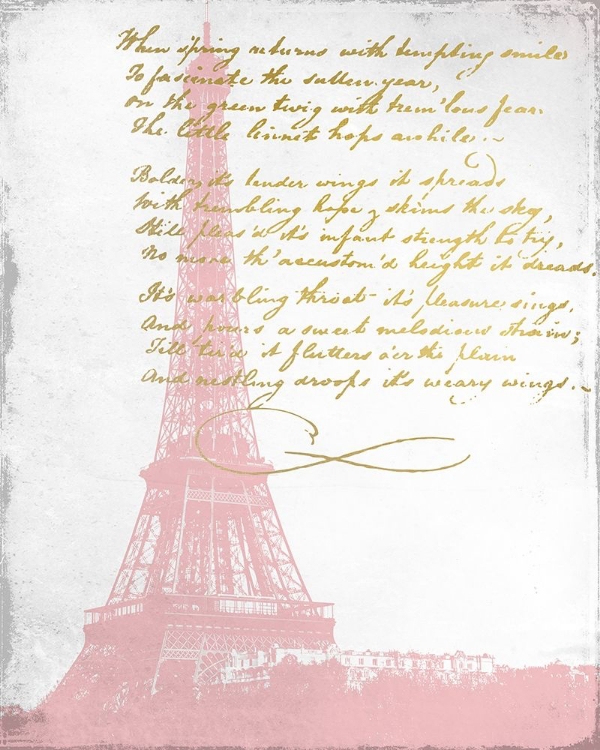 When spring returns with tempting smiles
To fascinate the sullen year,
On the green twig with trem'lous fear
The little linnet hops awhile.

Bolder it's tender wings it spreads
With trembling hope z skims the sky,
Still pleas'd it's infant strength to try,
No more th' accustom'd height it dreads.

It's warbling throat it's pleasure sings,
And pours a sweet melodious strain;
Till tir'd it flutters o'er the plain
And nestling droops it's weary wings.